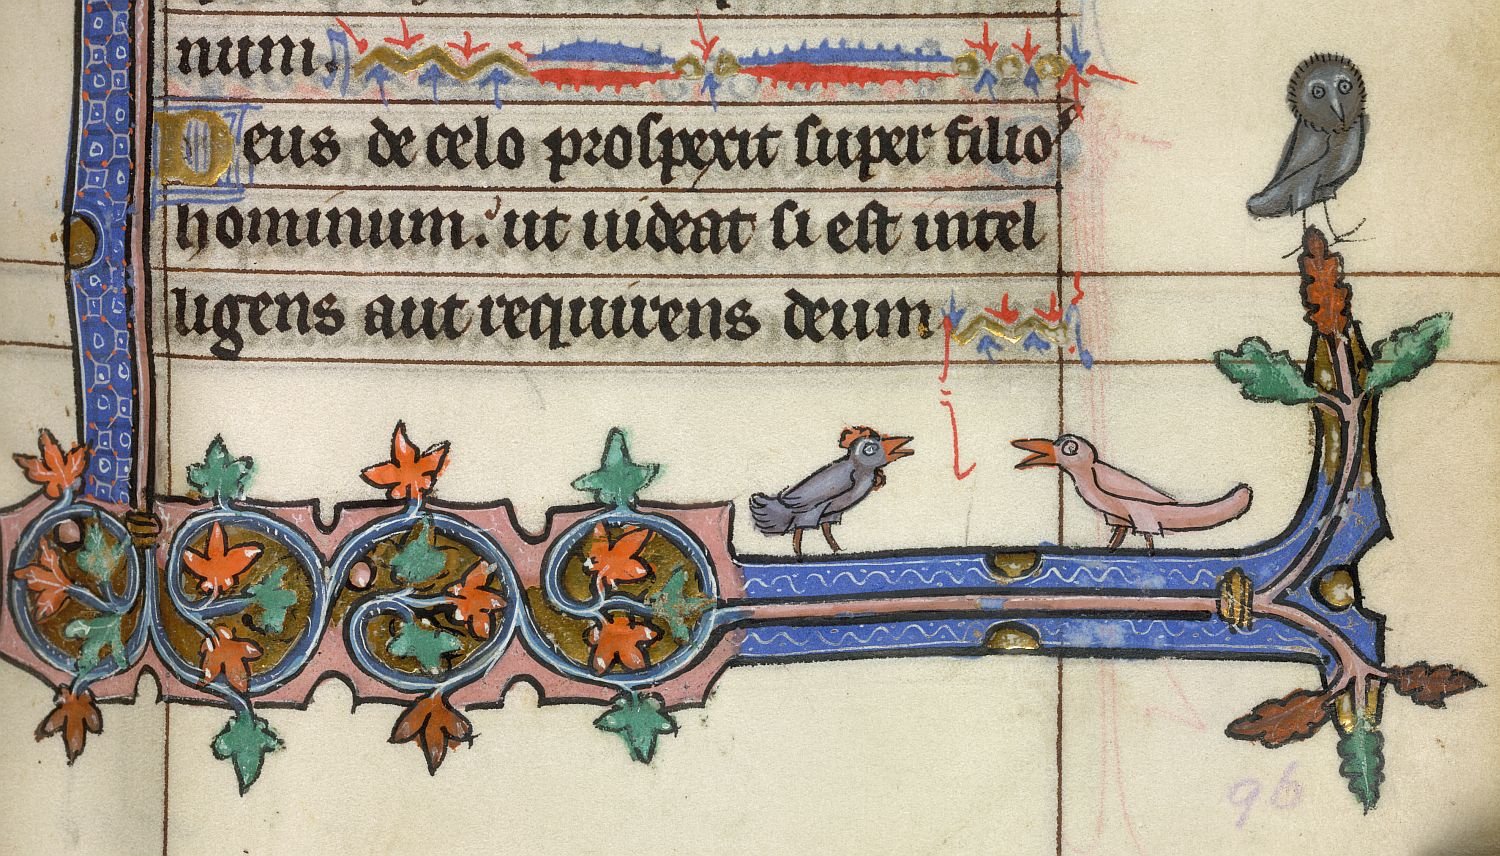 num.
Deus de celo prospexit super filio⁹
hominum. ut uideat si est intel
ligens aut requirens deum
96